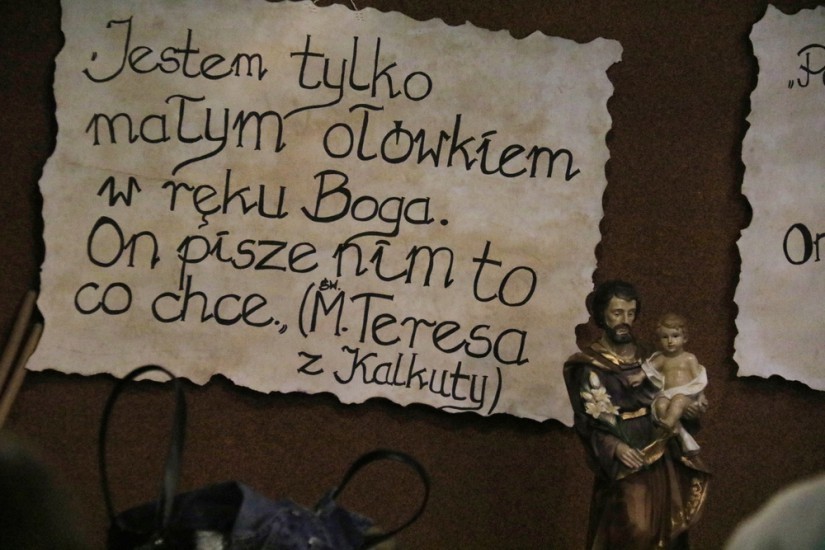 Jestem tylko
małym ołówkiem
w ręku Boga.
On pisze nim to
co chce.,, (św. M. Teresa
z Kalkuty)